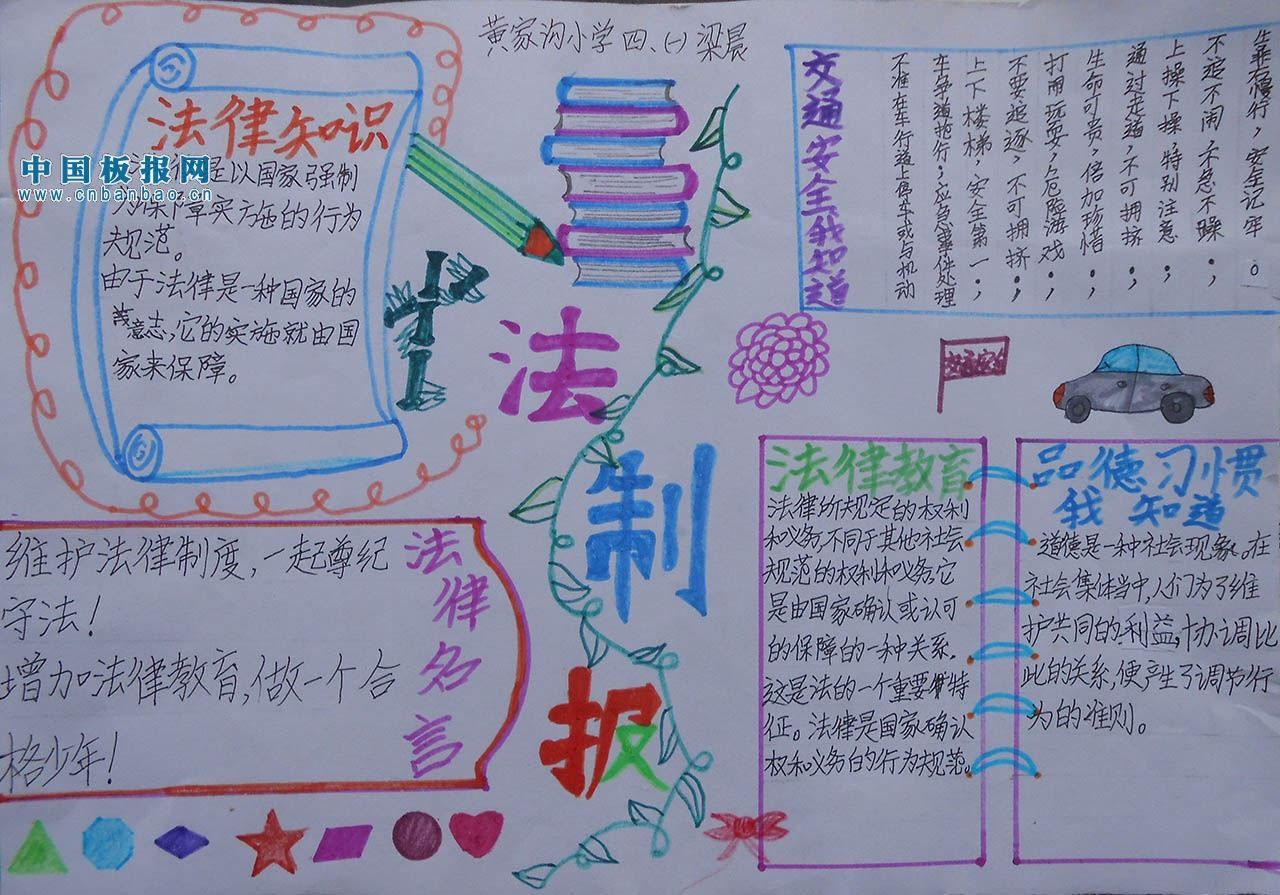 黄家沟小学四、(一)梁晨
法律知识
中国板报网
www.cnbanbao.cn
法律是以国家强制
为保障实施的行为
规范。
由于法律是一种国家的
意志,它的实施就由国
家来保障。
法
制
报
交通安全我知道
靠右慢行,安全记牢。
不追不闹,不急不躁。;
上操下操,特别注意。;
通过走道,不可拥挤。;
生命可贵,倍加珍惜。;
打闹玩耍,危险游戏。;
不要追逐,不可拥挤。;
上下楼梯,安全第一。;
车争道抢行;应急事件处理
不准在车行道上停车或与机动
法律名言
维护法律制度,一起尊纪
守法!
增加法律教育,做一个合
格少年!
法律教育
法律所规定的权利
和义务,不同于其他社会
规范的权利和义务,它
是由国家确认或认可
的保障的一种关系.
这是法的一个重要特
征。法律是国家确认
权和义务的行为规范。
品德习惯
我知道
道德是一种社会现象。在
社会集体当中,人们为了维
护共同的利益,协调比
此的关系,便产生了调节行
为的准则。